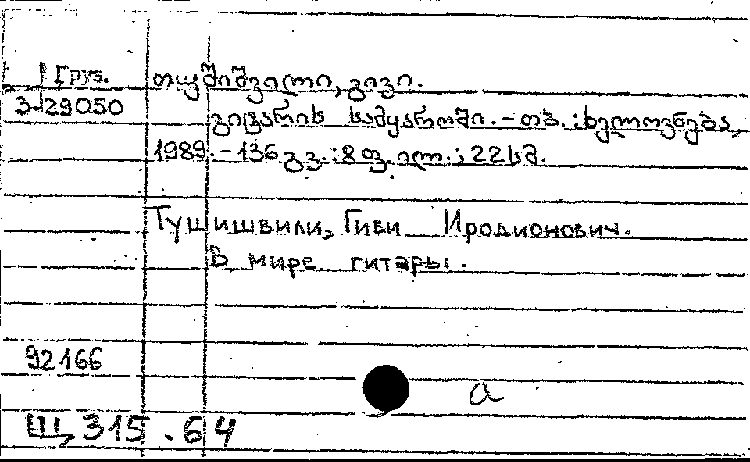 Груз.
თუშიშვილი, გივი.
3-29050
გიტარის სამყაროში. - თბ. : ხელოვნება,
1989. - 136 გვ. : 8 ფ. ილ. ; 22 სმ.
Тушишвили, Гиви Иродионович.
В мире гитары.
92166
а
Щ 315.64